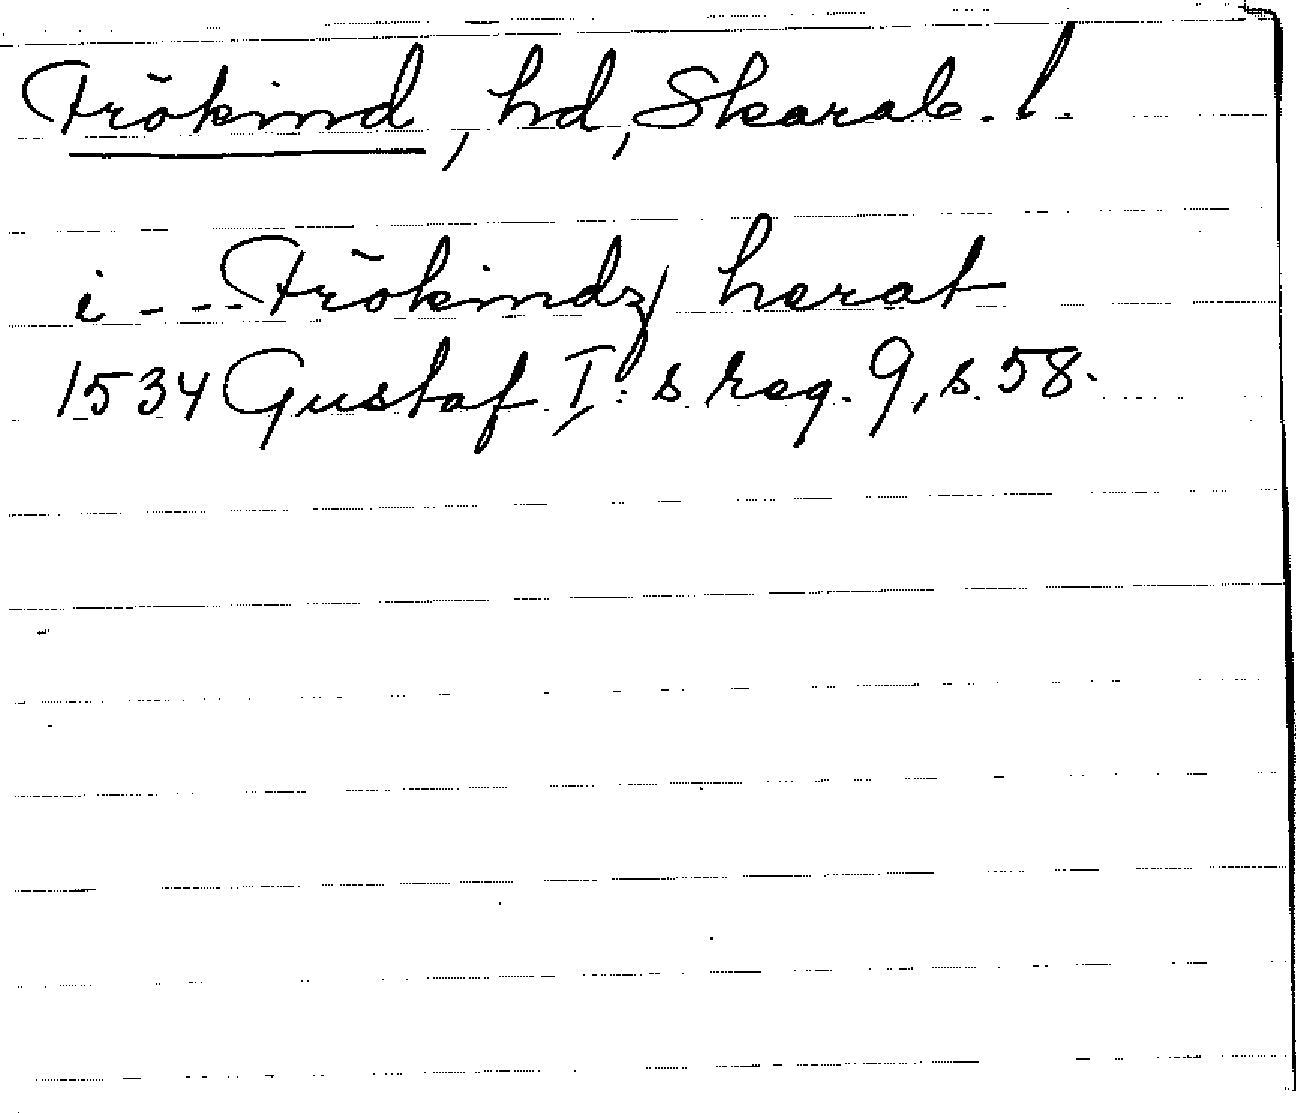 Frökind, hd, Skarab. l.
i - - - Frökindz herat
1534 Gustaf I:s reg. 9, s. 58.